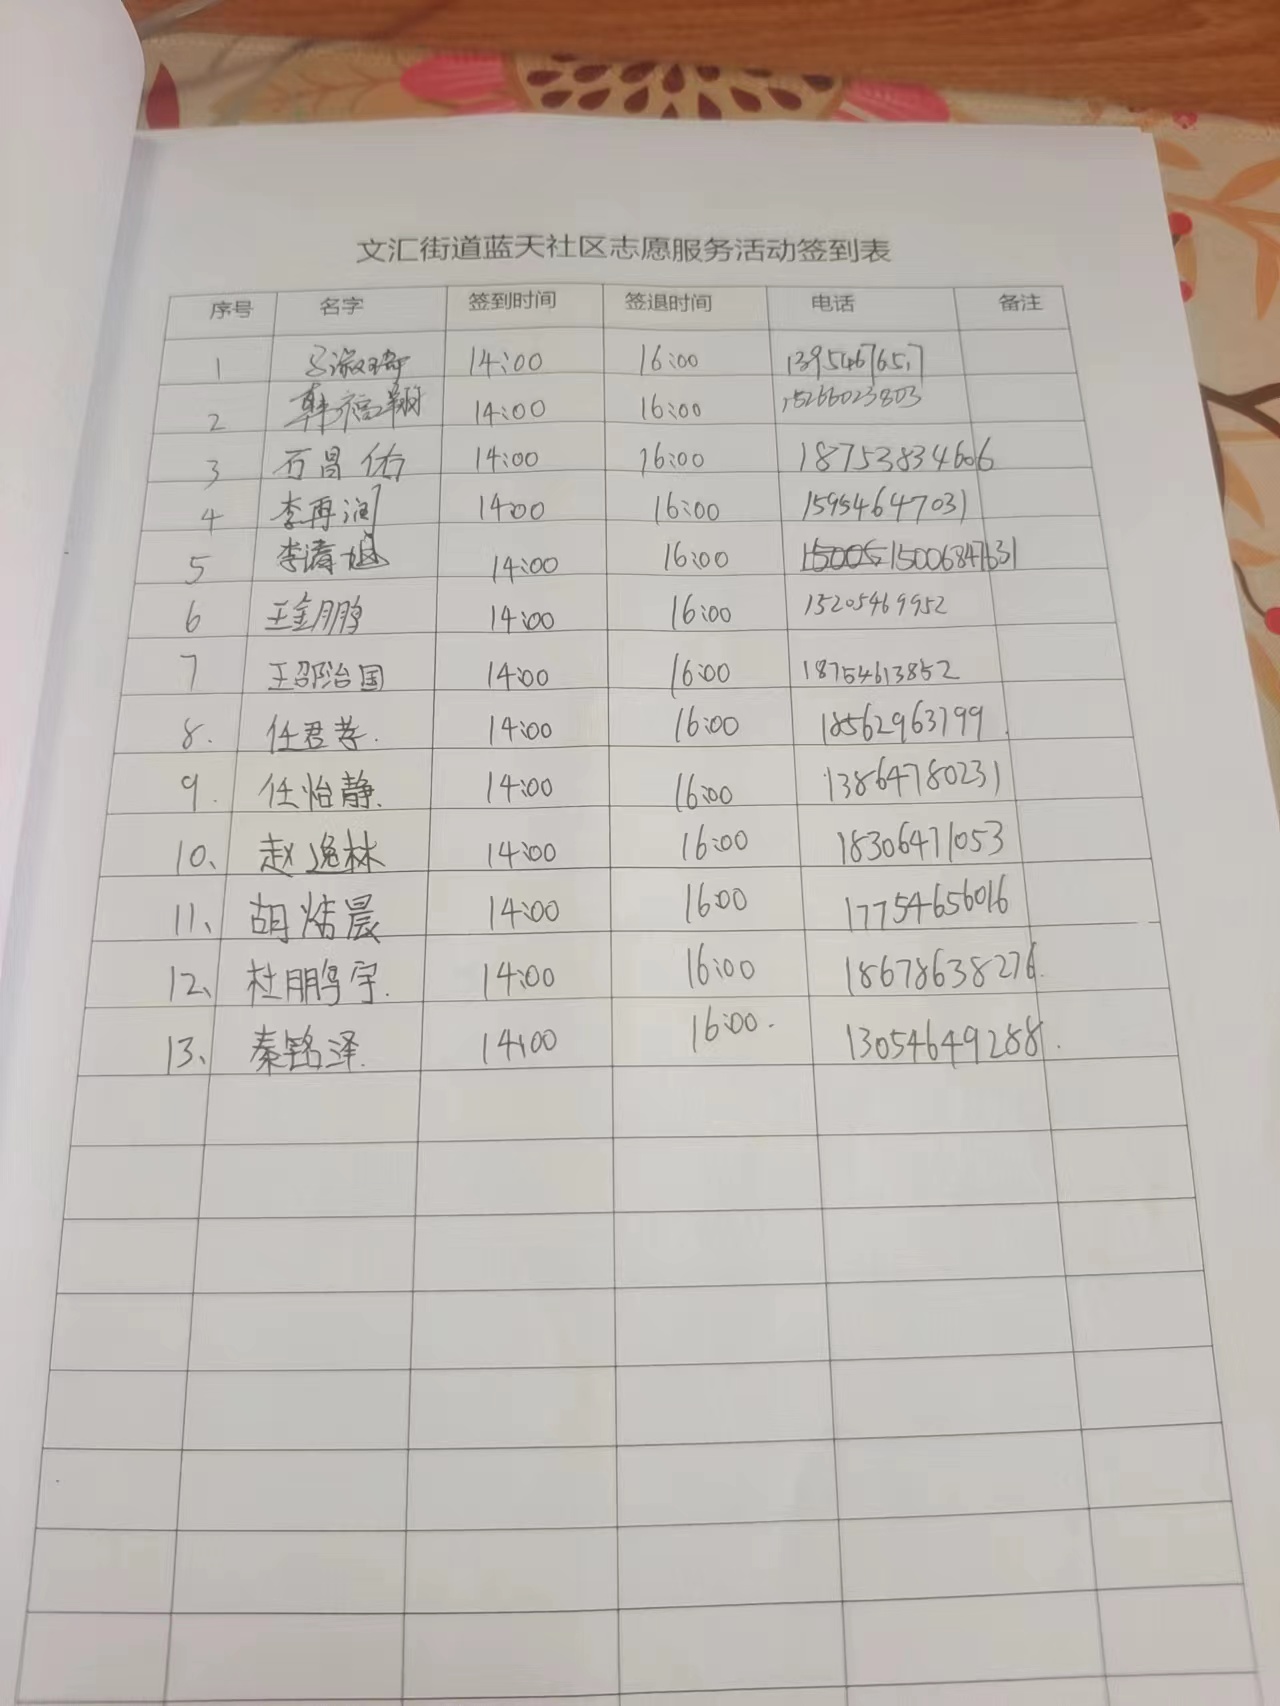 文汇街道蓝天社区志愿服务活动签到表
序号 名字 签到时间 签退时间 电话 备注
1 14:00 16:00
2 韩福翔 14:00 16:00 15266023803
3 石昌佑 14:00 16:00 18753834606
4 李再润 14:00 16:00 15954647031
5 14:00 16:00 15006847631
6 王金鹏 14:00 16:00 15205469952
7 王邵治国 14:00 16:00 18754613852
8. 任君孝. 14:00 16:00 18562963799
9. 任怡静. 14:00 16:00 13864780231
10、 赵逸林 14:00 16:00 18306471053
11、 胡炳晨 14:00 16:00 17754656016
12、 杜鹏宇. 14:00 16:00 18678638276.
13、 秦铭泽. 14:00 16:00. 13054649288.